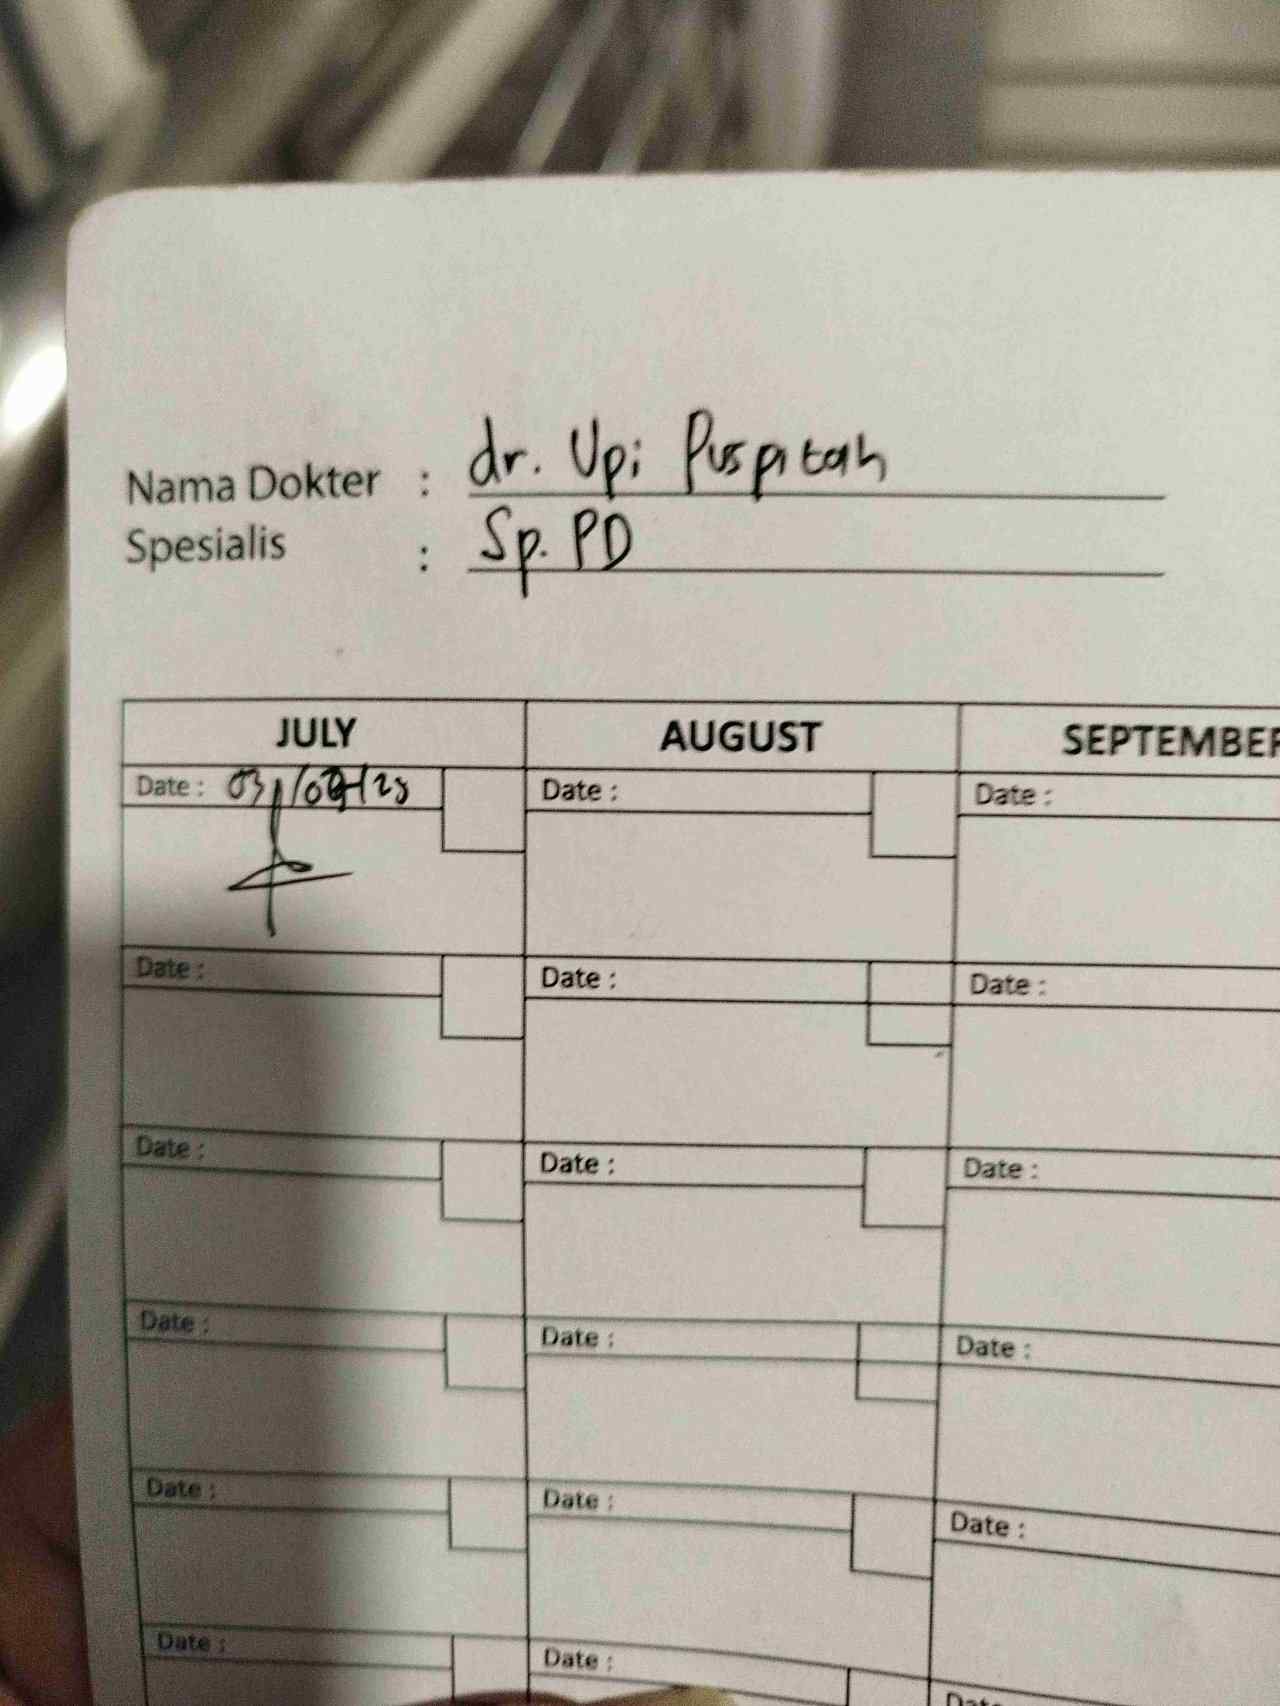 Nama Dokter : dr. Upi Puspitah
Spesialis : Sp. PD
JULY AUGUST SEPTEMBER
Date : 03/07/25 Date : Date :
Date : Date : Date :
Date : Date : Date :
Date : Date : Date :
Date : Date : Date :
Date : Date : Date